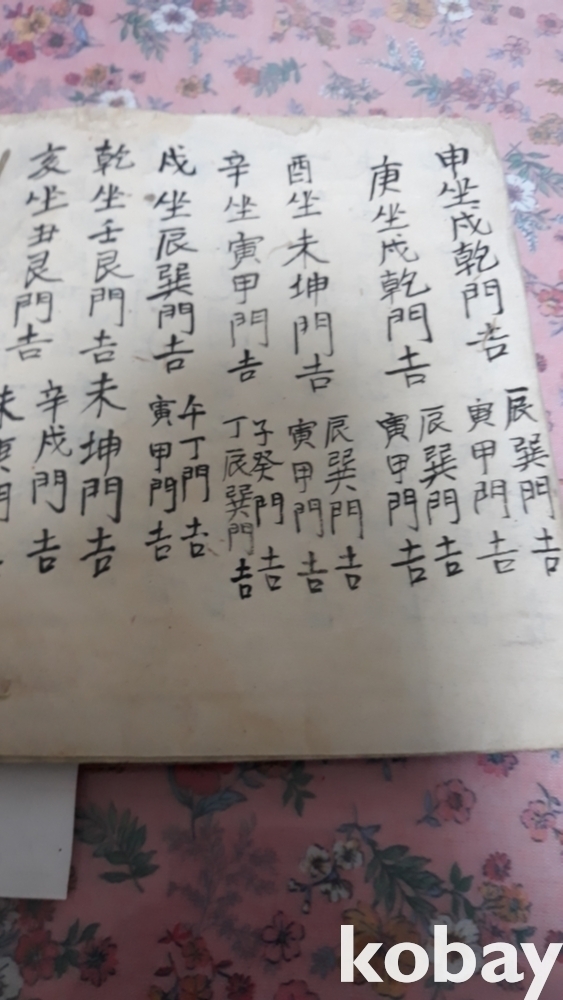 申坐戌乾門吉
辰巽門吉
寅甲門吉
庚坐戌乾門吉
辰巽門吉
寅甲門吉
酉坐未坤門吉
辰巽門吉
寅甲門吉
辛坐寅甲門吉
子癸門吉
丁辰巽門吉
戌坐辰巽門吉
午丁門吉
寅甲門吉
乾坐壬艮門吉
未坤門吉
亥坐丑艮門吉
辛戌門吉
kobay